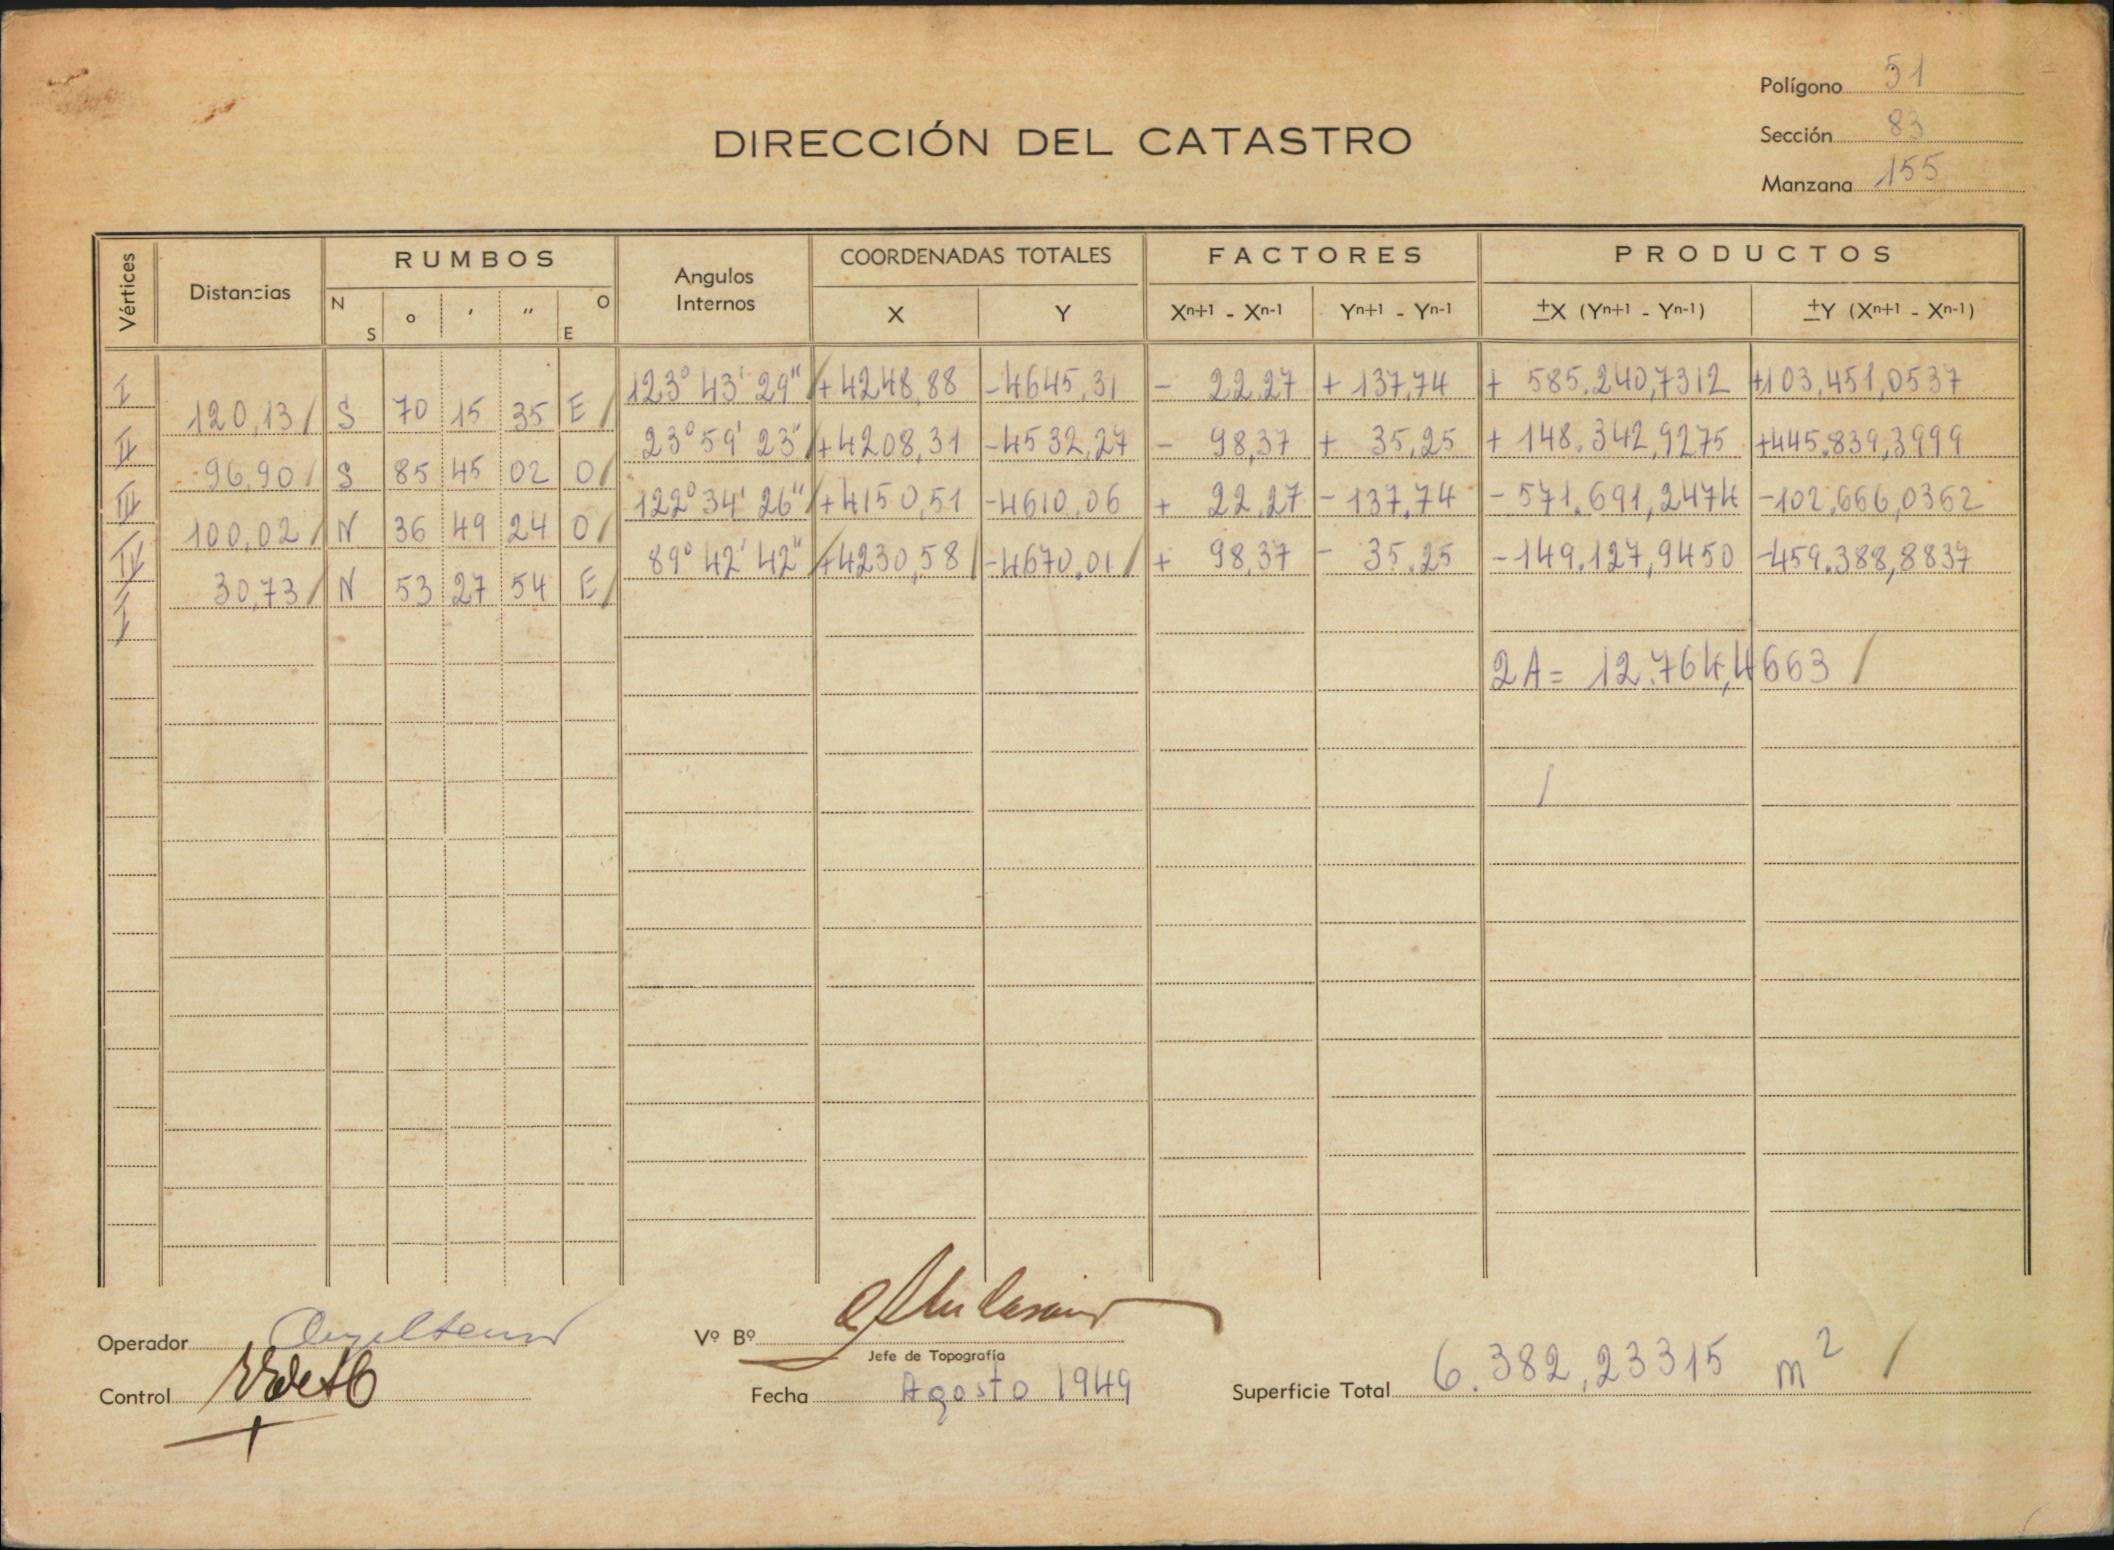 Polígono 51
DIRECCIÓN DEL CATASTRO
Sección 83
Manzana 155
Vértices Distancias RUMBOS Angulos Internos COORDENADAS TOTALES FACTORES PRODUCTOS
N S ° ' '' O E X Y Xn+1 - Xn-1 Yn+1 - Yn-1 ±X (Yn+1 - Yn-1) ±Y (Xn+1 - Xn-1)
I 123° 43' 29" +4248,88 -4645,31 - 22,27 + 137,74 + 585.240,7312 +103.451,0537
120,13 S 70 15 35 E
II 23° 59' 23" +4208,31 -4532,27 - 98,37 + 35,25 + 148.342,9275 +445.839,3999
96,90 S 85 45 02 O
III 122° 34' 26" +4150,51 -4610,06 + 22,27 - 137,74 - 571.691,2474 -102.666,0362
100,02 N 36 49 24 O
IV 89° 42' 42" +4230,58 -4670,01 + 98,37 - 35,25 -149.127,9450 -459.388,8837
30,73 N 53 27 54 E
I
2A= 12.764,4663
Operador
Vº Bº
Jefe de Topografía
Control
Fecha Agosto 1949
Superficie Total 6.382,23315 m²